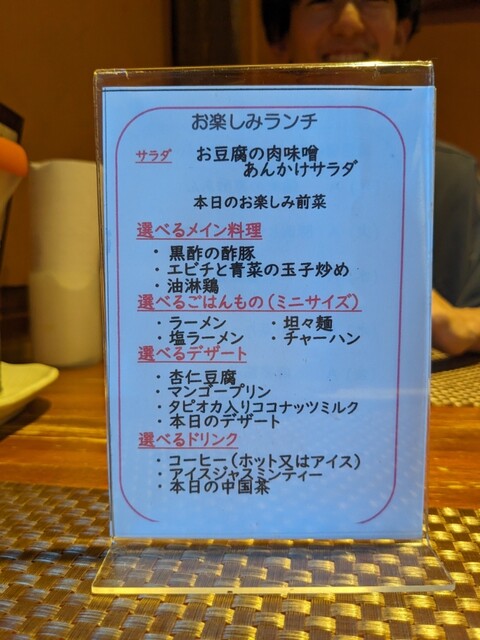 お楽しみランチ
サラダ お豆腐の肉味噌
あんかけサラダ
本日のお楽しみ前菜
選べるメイン料理
・黒酢の酢豚
・エビチと青菜の玉子炒め
・油淋鶏
選べるごはんもの(ミニサイズ)
・ラーメン ・坦々麺
・塩ラーメン ・チャーハン
選べるデザート
・杏仁豆腐
・マンゴープリン
・タピオカ入りココナッツミルク
・本日のデザート
選べるドリンク
・コーヒー(ホット又はアイス)
・アイスジャスミンティー
・本日の中国茶